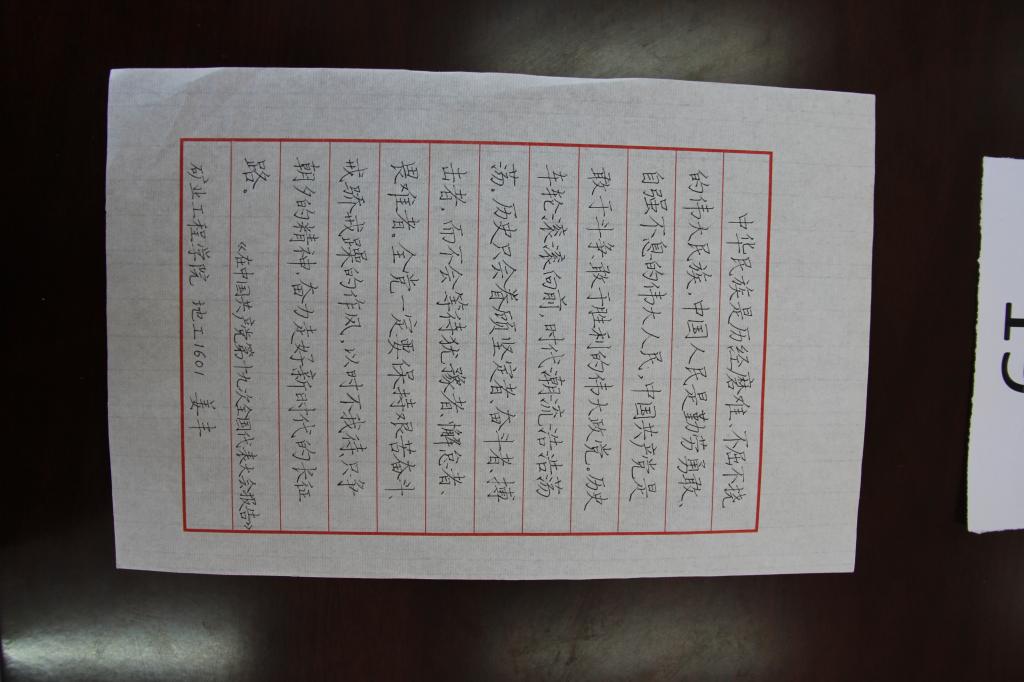 中华民族是历经磨难、不屈不挠
的伟大民族、中国人民是勤劳勇敢、
自强不息的伟大人民，中国共产党是
敢于斗争、敢于胜利的伟大政党。历史
车轮滚滚向前，时代潮流浩浩荡
荡。历史只会眷顾坚定者、奋斗者、搏
击者，而不会等待犹豫者、懈怠者、
畏难者。全党一定要保持艰苦奋斗、
戒骄戒躁的作风，以时不我待、只争
朝夕的精神，奋力走好新时代的长征
路。
《在中国共产党第十九次全国代表大会报告》
矿业工程学院 地工1601 姜丰
19